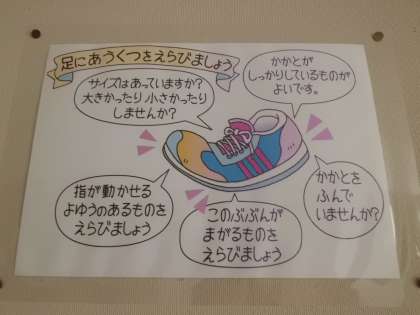 足にあうくつをえらびましょう
サイズはあっていますか?
大きかったり 小さかったり
しませんか?
かかとが
しっかりしているものが
よいです。
指が動かせる
よゆうのあるものを
えらびましょう
このぶぶんが
まがるものを
えらびましょう
かかとを
ふんで
いませんか?